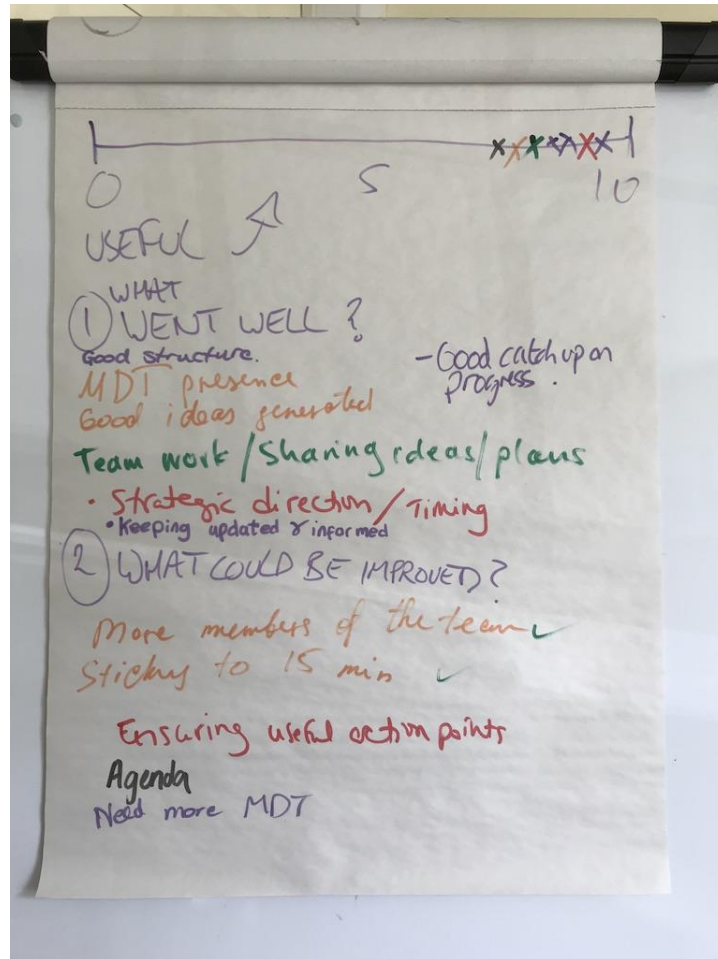 0 5 10
USEFUL
WHAT
① WENT WELL?
Good structure.
- Good catch up on
progress.
MDT presence
Good ideas generated
Team work / Sharing ideas / plans
• Strategic direction / Timing
• Keeping updated & informed
② WHAT COULD BE IMPROVED?
More members of the team ✓
Sticking to 15 min ✓
Ensuring useful action points
Agenda
Need more MDT